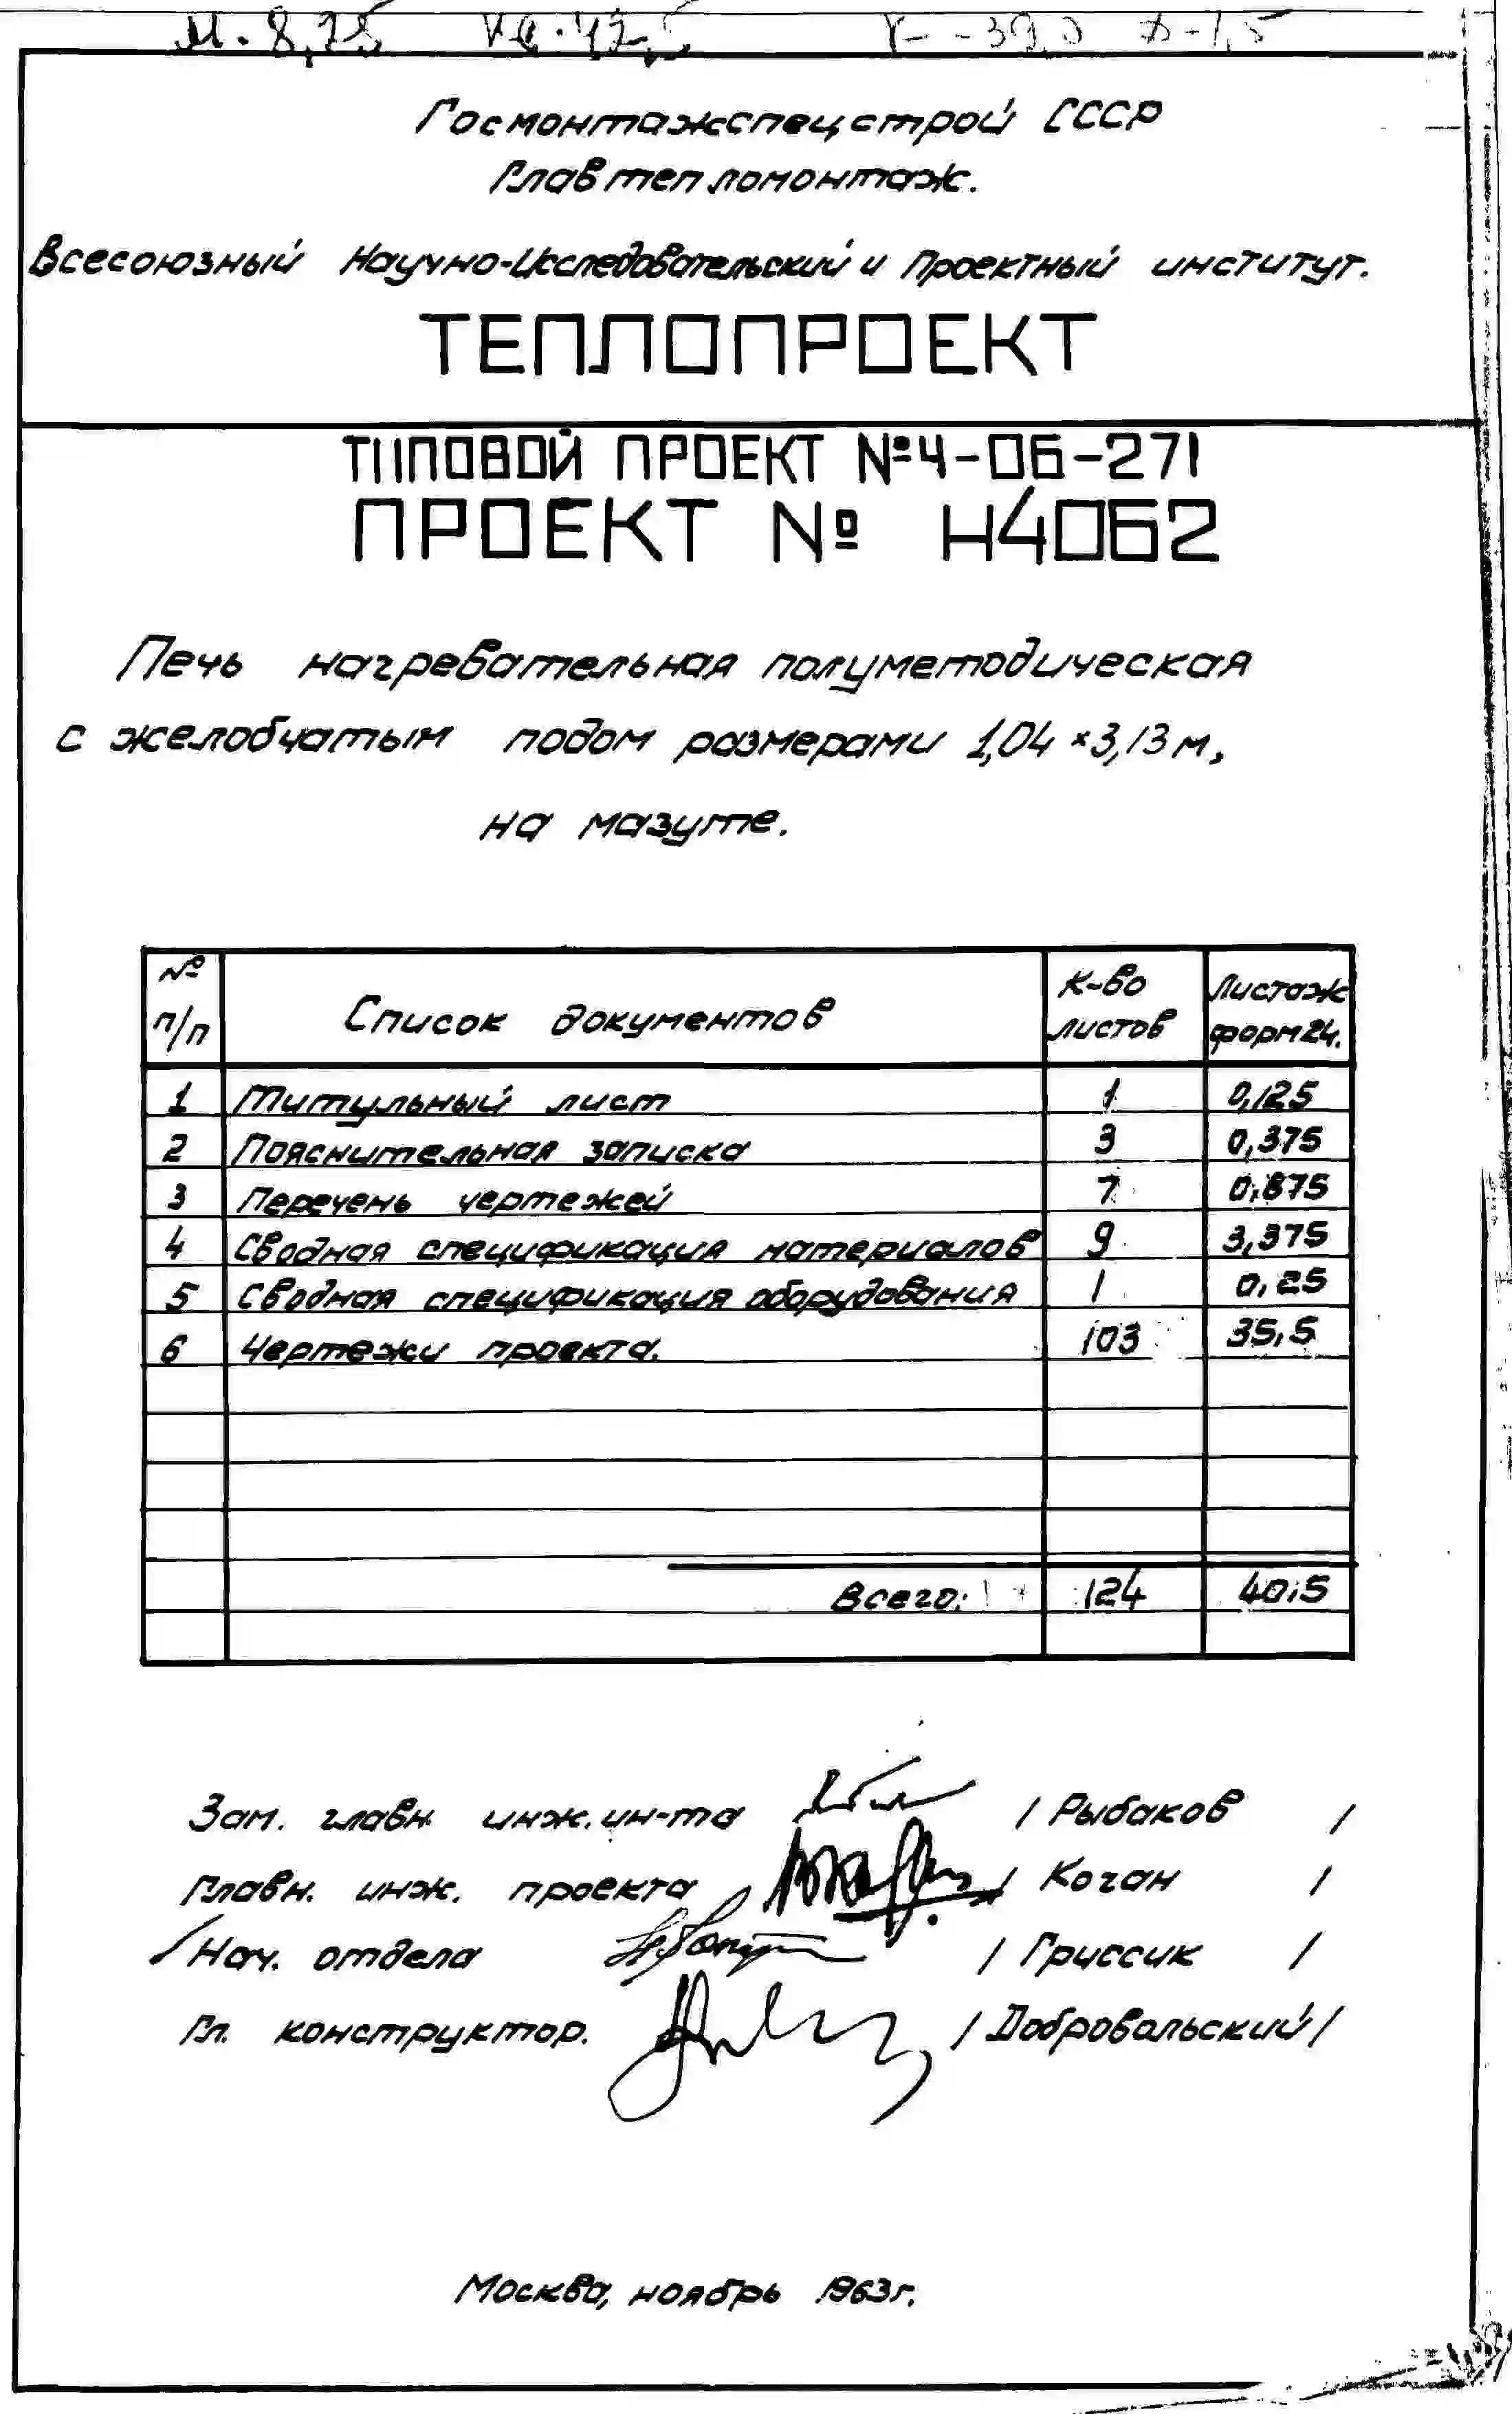 М. 8,75
Госмонтажспецстрой СССР
Главтепломонтаж.
Всесоюзный Научно-Исследовательский и Проектный институт.
ТЕПЛОПРОЕКТ
ТИПОВОЙ ПРОЕКТ №4-06-271
ПРОЕКТ № Н4062
Печь нагревательная полуметодическая
с желобчатым подом размерами 1,04 × 3,13 м,
на мазуте.
№ п/п Список документов К-во листов Листаж форм 24.
1 Титульный лист 1 0,125
2 Пояснительная записка 3 0,375
3 Перечень чертежей 7 0,875
4 Сводная спецификация материалов 9 3,375
5 Сводная спецификация оборудования 1 0,25
6 Чертежи проекта. 103 35,5
Всего: 124 40,5
Зам. главн. инж. ин-та / Рыбаков /
Главн. инж. проекта / Коган /
Нач. отдела / Гриссик /
Гл. конструктор. / Добровольский /
Москва, ноябрь 1963г.